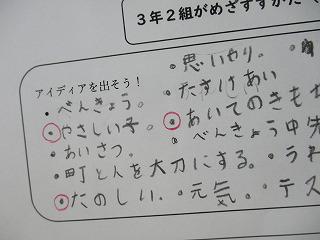 3年2組がめざすすがた
アイディアを出そう!
・べんきょう。
・やさしい子。
・あいさつ。
・町と人を大刀にする。
・たのしい。
・思いやり。
・たすけあい
・あいてのきもち
・べんきょう中
・元気。